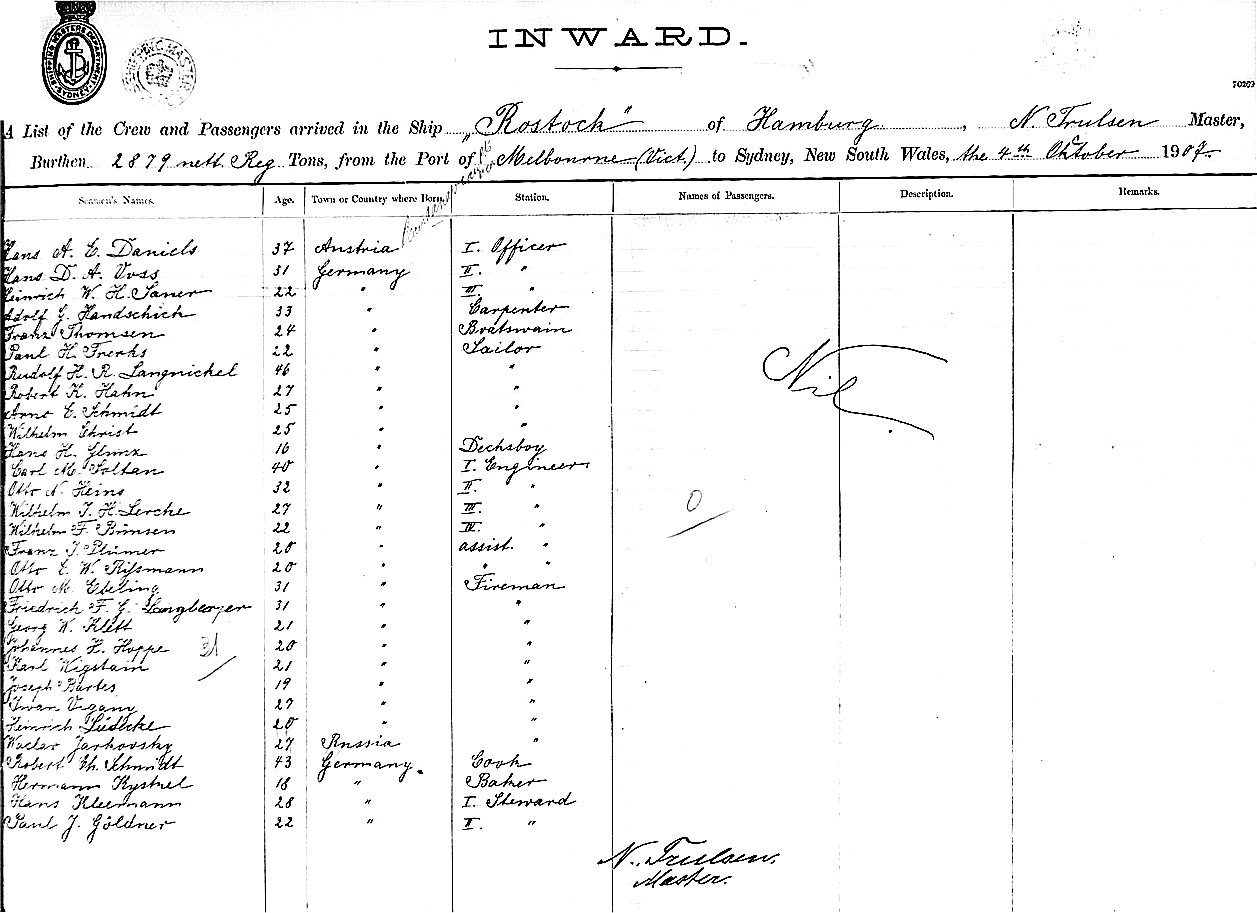 SHIPPING MASTERS DEPARTMENT SYDNEY
SHIPPING MASTER
INWARD.
70269
A List of the Crew and Passengers arrived in the Ship "Rostock" of Hamburg, N. Trulsen Master,
Burthen 2879 nett. Reg Tons, from the Port of Melbourne (Vict.) to Sydney, New South Wales, the 4th October 1907.
Seamen's Names. Age. Town or Country where Born. Station. Names of Passengers. Description. Remarks.
Hans A. E. Daniels 37 Austria I. Officer
Hans D. A. Voss 31 Germany II. "
Heinrich W. H. Saner 22 " III. "
Adolf G. Handschich 33 " Carpenter
Franz Thomsen 24 " Boatswain
Paul H. Frerks 22 " Sailor
Rudolf H. R. Langnickel 46 " "
Robert K. Hahn 27 " "
Arno E. Schmidt 25 " "
Wilhelm Christ 25 " "
Hans H. Glunz 16 " Decksboy
Carl M. Soltan 40 " I. Engineer
Otto N. Heins 32 " II. "
Wilhelm J. H. Lerche 27 " III. "
Wilhelm F. Bünsen 22 " IV. "
Franz J. Plümer 20 " assist. "
Otto E. W. Rißmann 20 " " "
Otto M. Ebeling 31 " Fireman
Friedrich F. G. Langberger 31 " "
Georg W. Klett 21 " "
Johannes H. Hoppe 20 " "
Karl Wigstain 21 " "
Joseph Bartes 19 " "
Iwan Vrgany 27 " "
Heinrich Lüdtcke 20 " "
Waclav Jarkovsky 27 Russia "
Robert Th. Schmidt 43 Germany. Cook
Hermann Kystnel 18 " Baker
Hans Kleemann 28 " I. Steward
Paul J. Göldner 22 " I. "
31
Nil.
0
N. Trulsen.
Master.